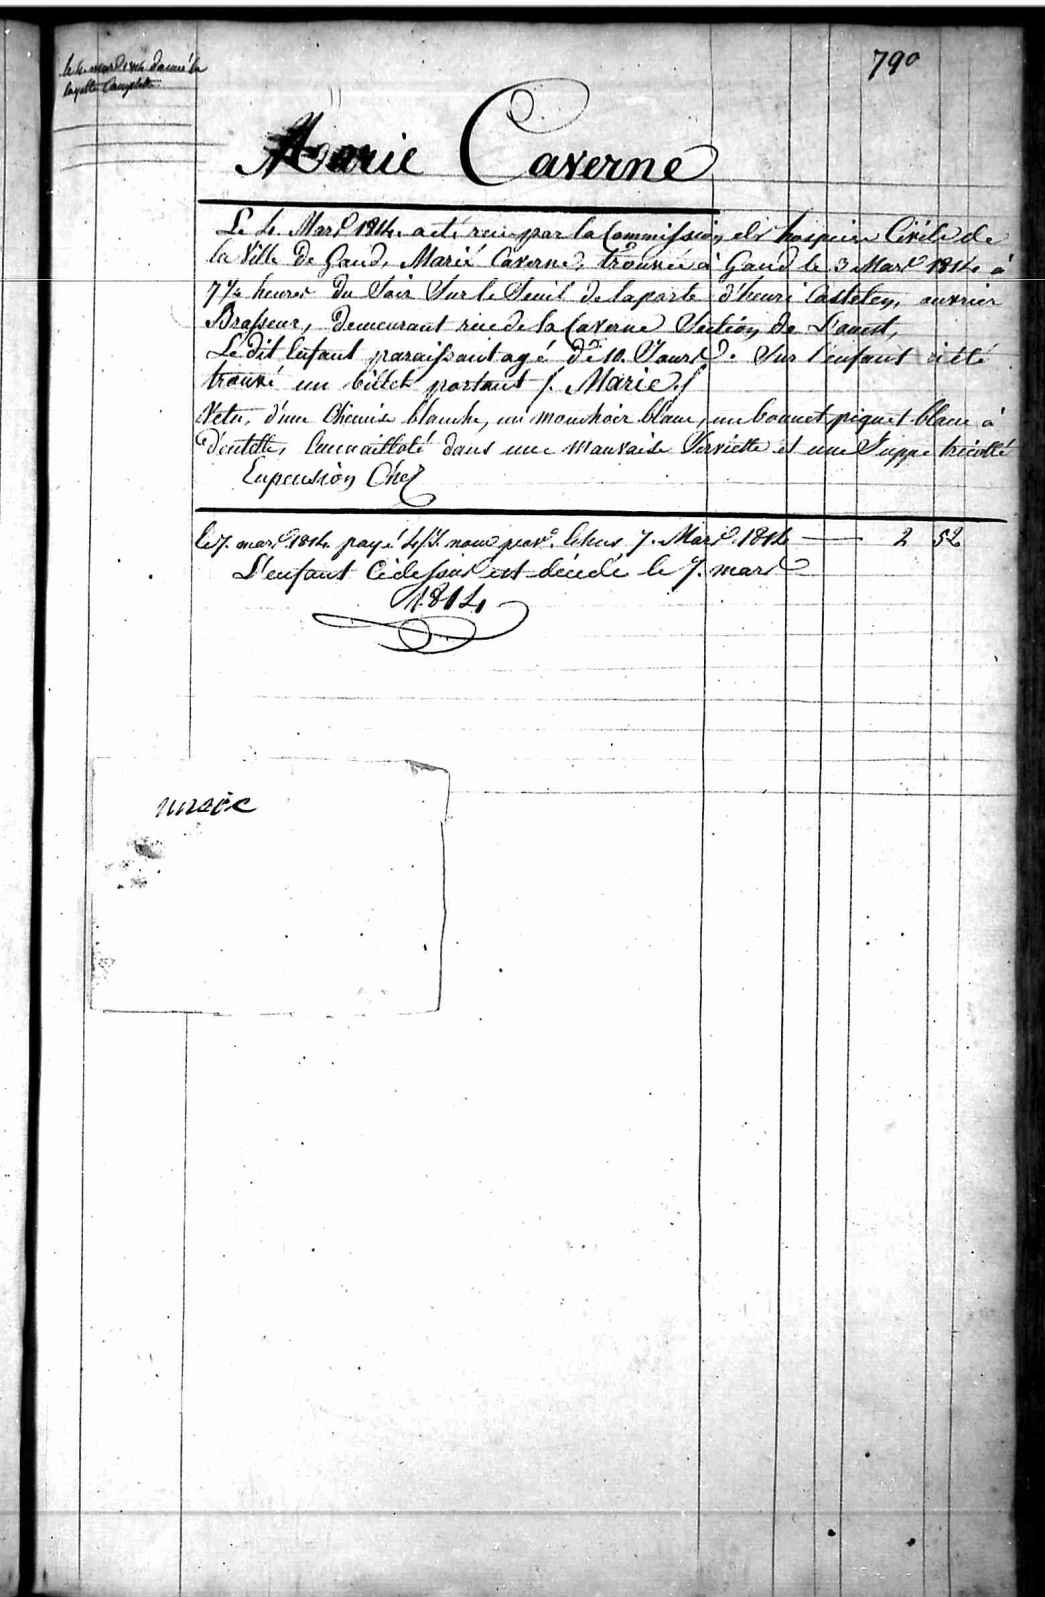 790
le 4. mars 1814 donné la
layette Complette
Marie Caverne
Le 4. Mars 1814. a été recu par la Commission des hospices Civils de
la Ville de Gand, Marie Caverne, trouvée à Gand le 3 Mars 1814 à
7 ½ heures du Soir Sur le Seuil de la porte d'henri Casteley, ouvrier
Brasseur, demeurant rue de la Caverne Section de l'ouest,
Le dit Enfant paraissant agé de 10 Jours. Sur l'enfant a été
trouvé un billet portant f. Marie. f
Vetu, d'une Chemise blanche, un mouchoir blanc, un bonnet piquet blanc à
Dentelle, Emmailloté dans une mauvaise Serviette et une Juppe tricotté
Enpension Chez
le 7. mars 1814. payé nour 7. Mars 1814 — 2 52
L'enfant Cidessus est décédé le 7. mars
1814
marie